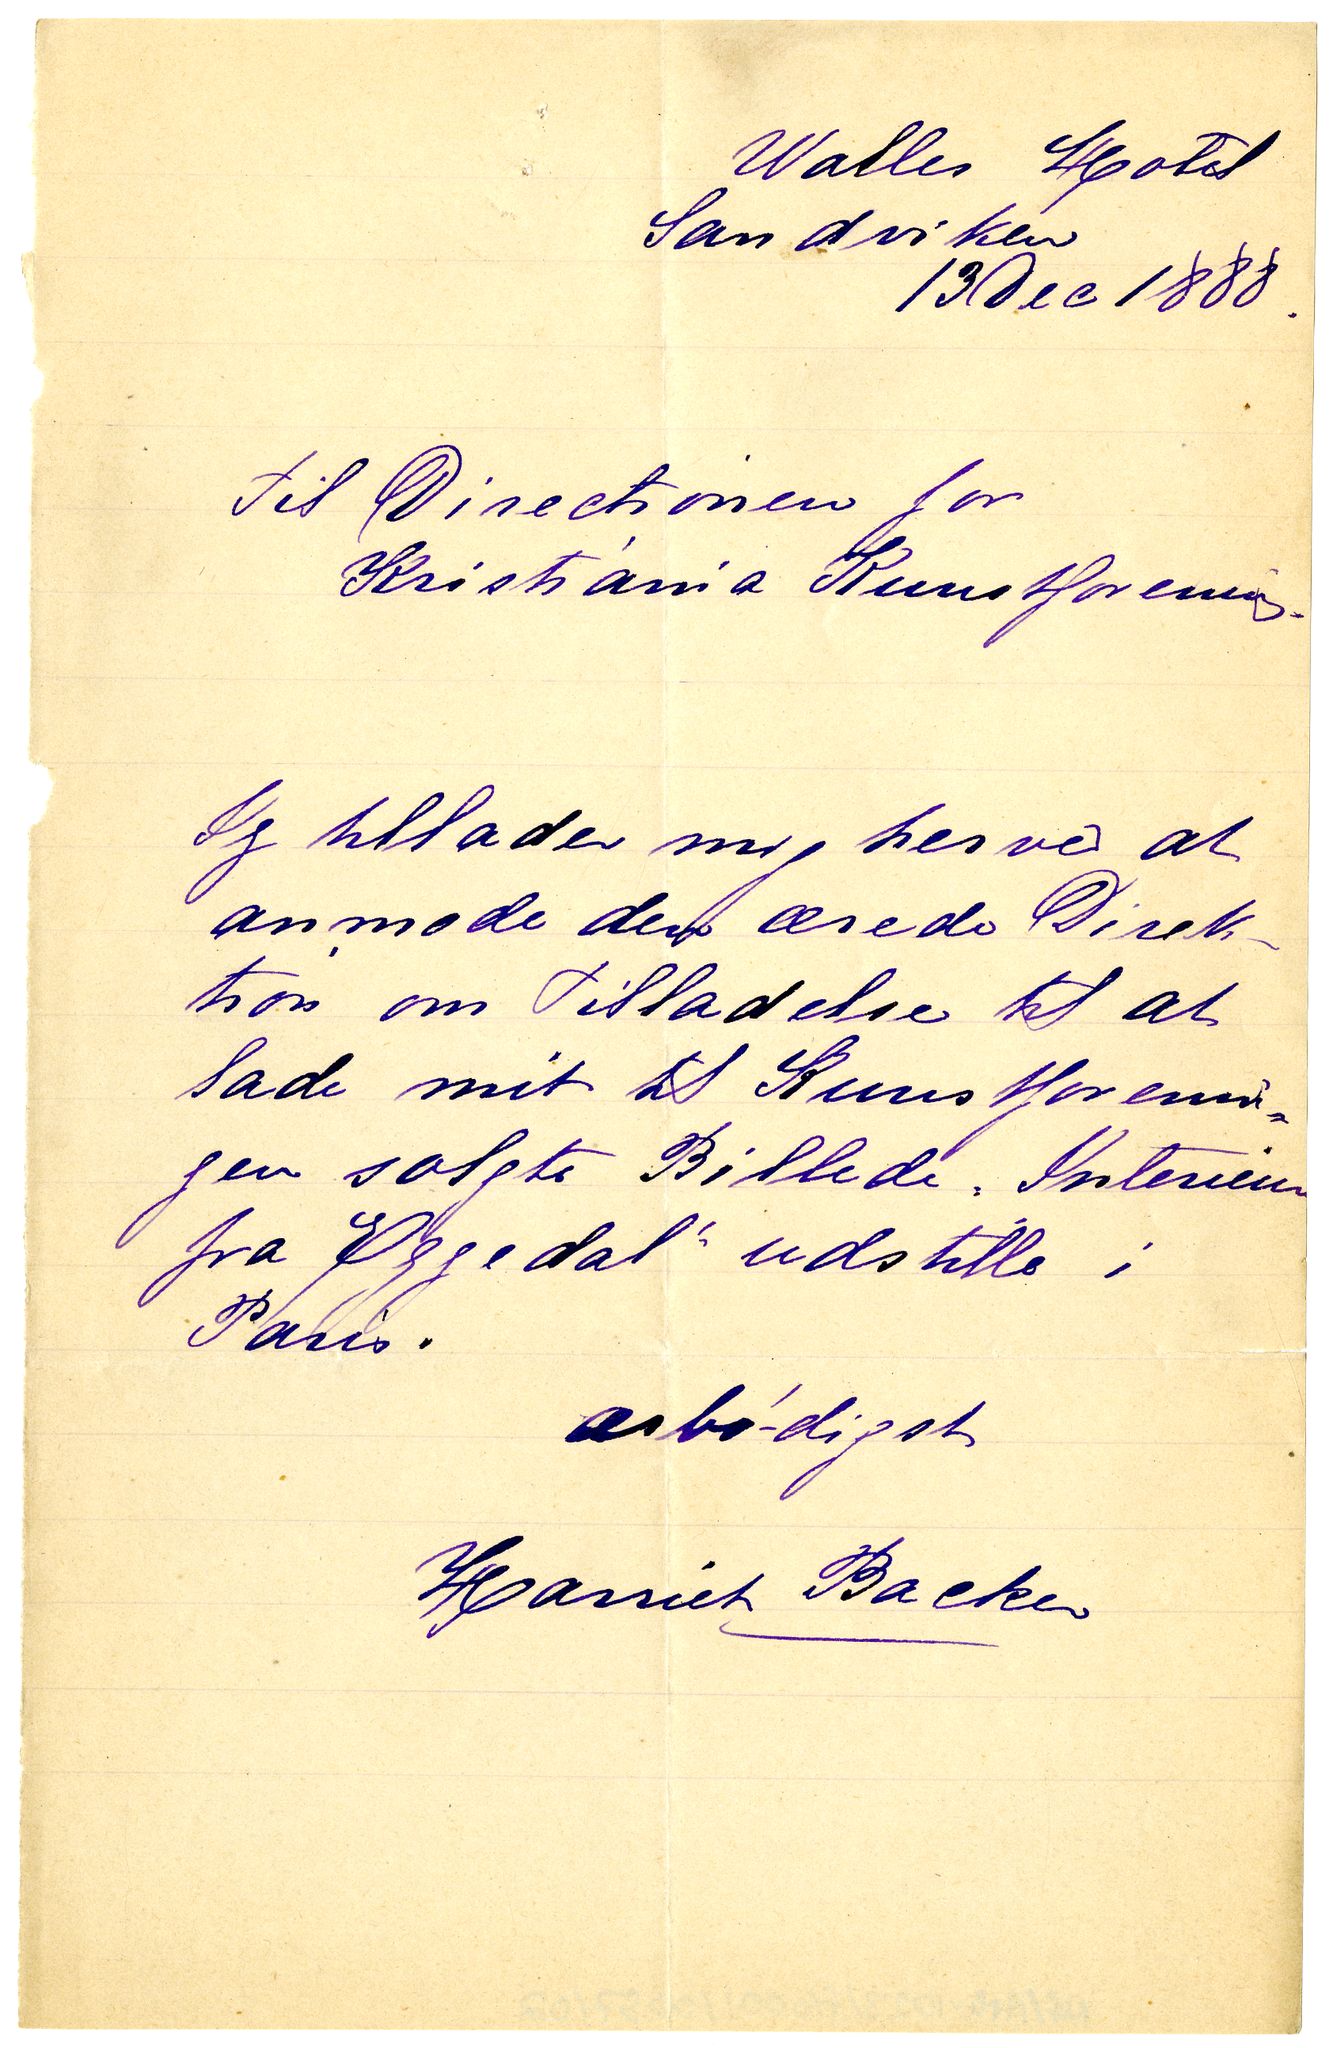 Walles Hotel
Sandviken
13 Dec 1888.
Til Directionen for
Kristiania Kunstforening.
Jeg tillader mig herved at
anmode den ærede Direk-
tion om Tilladelse til at
lade mit til Kunstforenin-
gen solgte Billede „Interieur
fra Eggedal“ udstille i
Paris.
ærbødigst
Harriet Backer